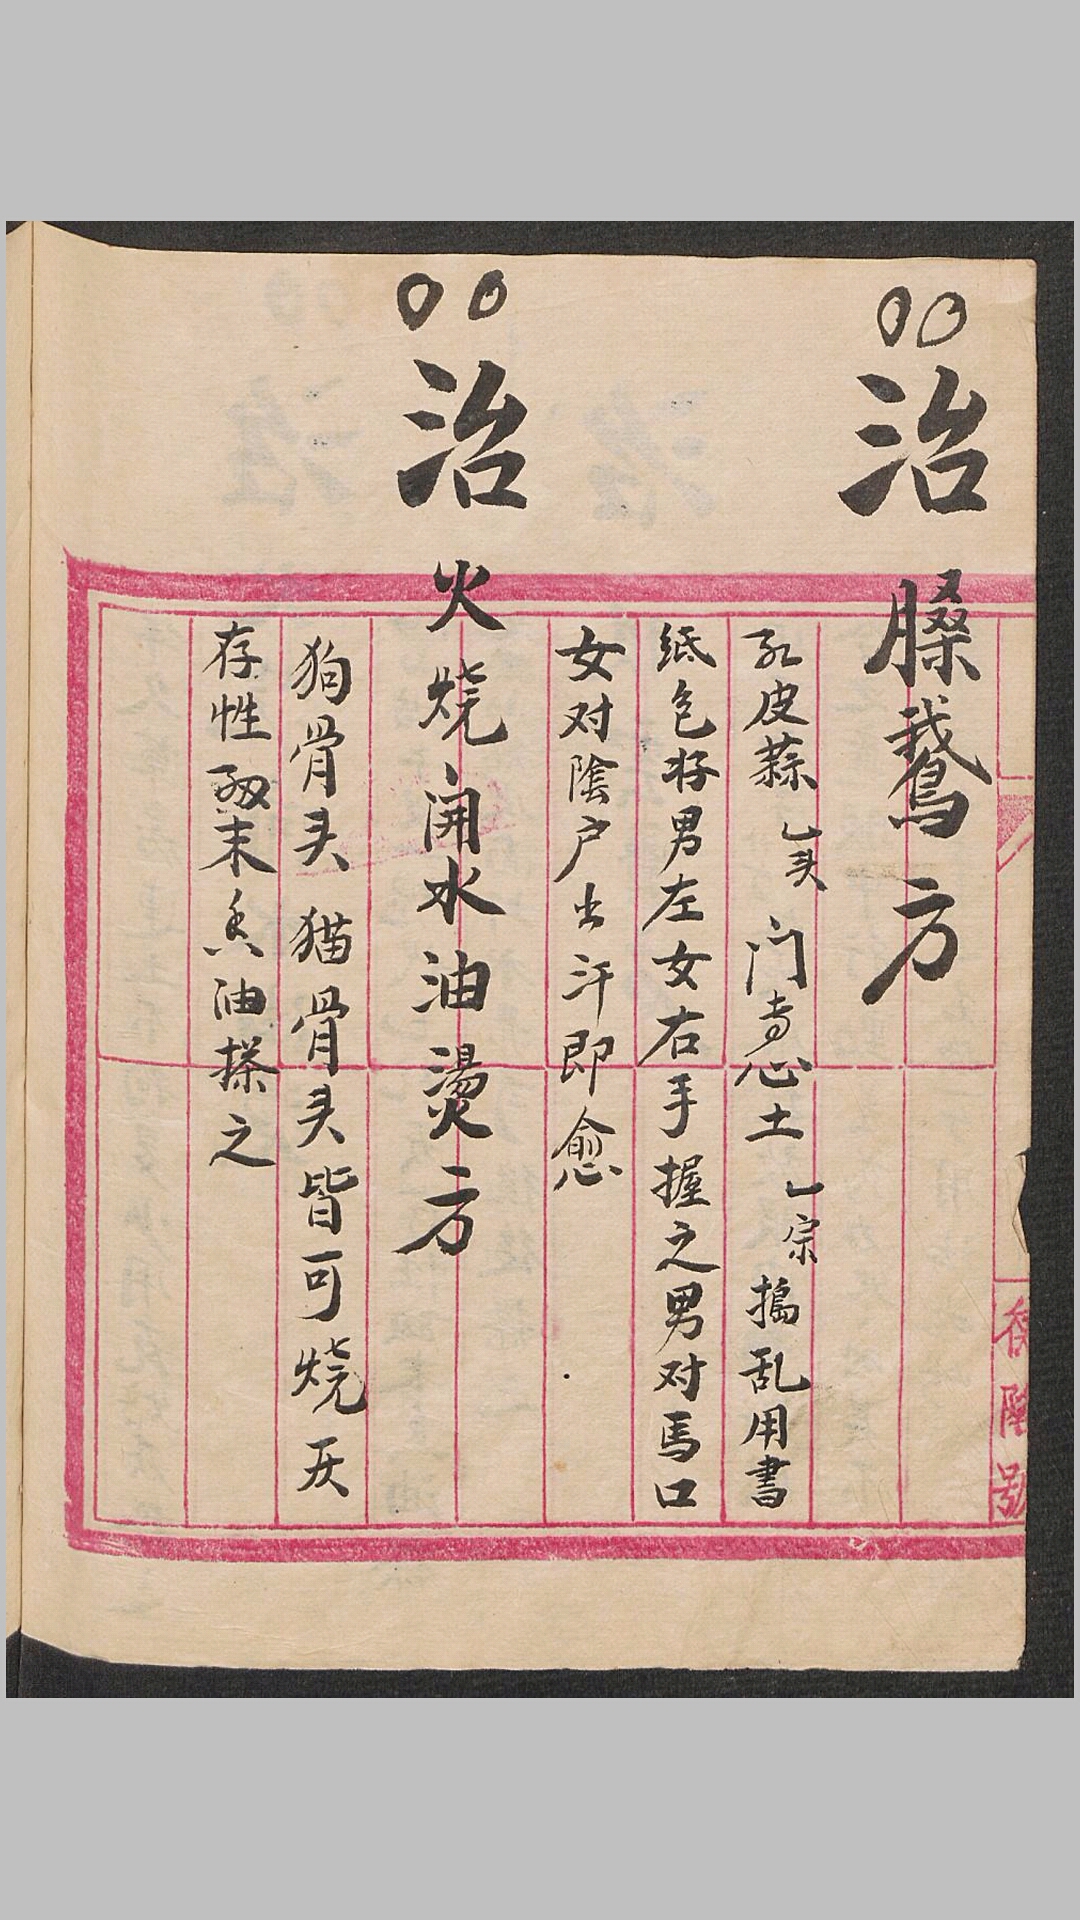 治
膓鵝方
紅皮蒜 乚头 门
心土 乚宗 搗乱用書
纸包好男左女右手握之男对馬口
女对陰户出汗即愈
治
火烧開水油燙方
狗骨头 猫骨头皆可烧灰
存性 末 油搽之
隆號